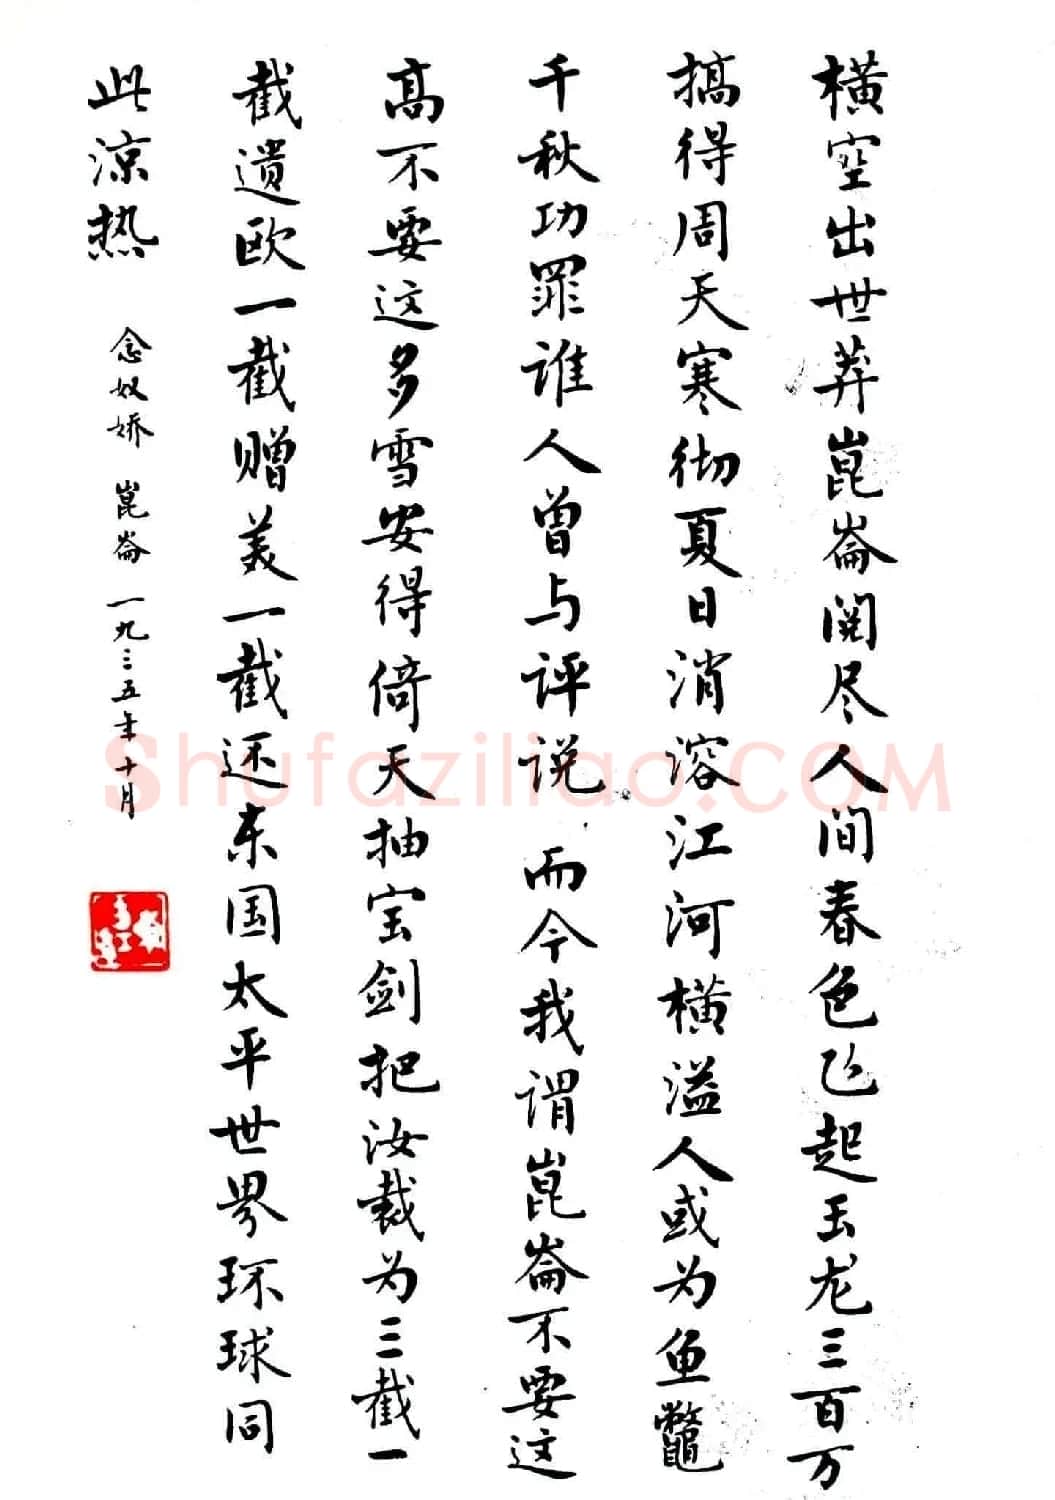 横空出世莽崑崙阅尽人间春色飞起玉龙三百万
搞得周天寒彻夏日消溶江河横溢人或为鱼鳖
千秋功罪谁人曾与评说 而今我谓崑崙不要这
高不要这多雪安得倚天抽宝剑把汝裁为三截一
截遗欧一截赠美一截还东国太平世界环球同
此凉热 念奴娇 崑崙 一九三五年十月
Shufaziliao.COM